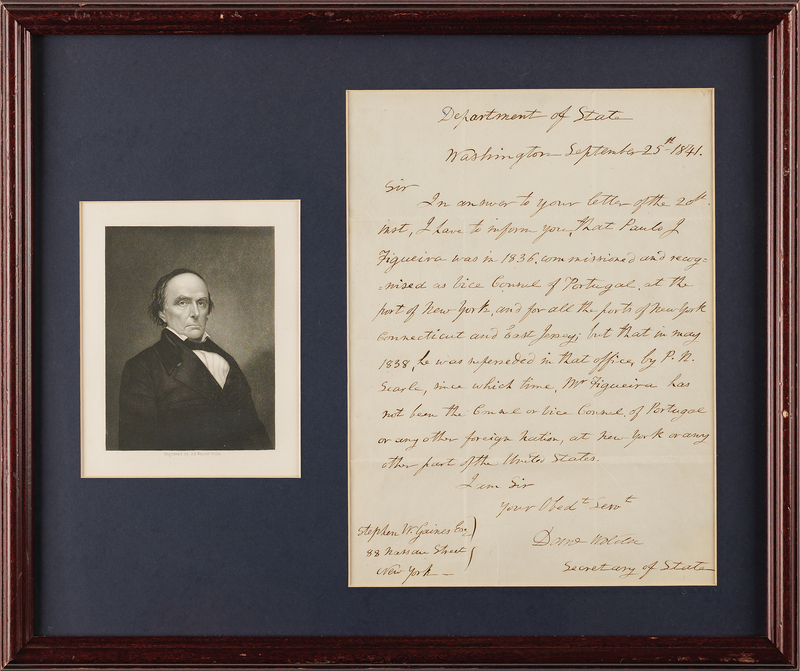 Department of State
Washington September 25th 1841.
Sir
In answer to your letter of the 20th
inst, I have to inform you, that Paulo J
Figueira was in 1836. commissioned and recog=
=nised as Vice Consul of Portugal, at the
port of New York, and for all the ports of New York
Connecticut and East Jersey; but that in may
1838, he was superseded in that office, by P. N.
Searle, since which time, Mr Figueira has
not been the Consul or Vice Consul, of Portugal
or any other foreign nation, at New York or any
other part of the United States.
I am Sir
Your Obedt Servt
Stephen W. Gaines Esq
88 Nassau Street
New York
Secretary of State